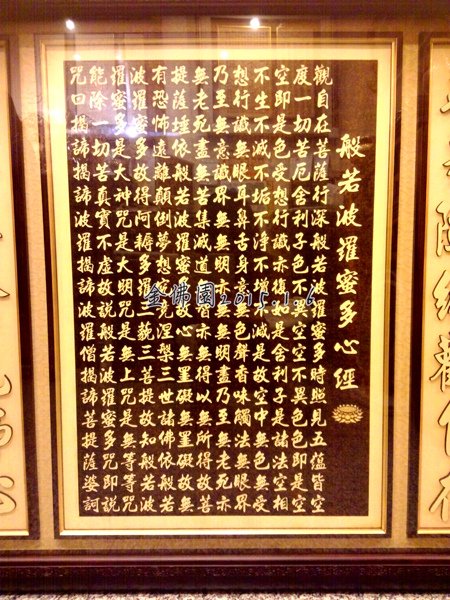 般若波羅蜜多心經
觀自在菩薩行深般若波羅蜜多時照見五蘊皆空
度一切苦厄舍利子色不異空空不異色色即是空
空即是色受想行識亦復如是舍利子是諸法空相
不生不滅不垢不淨不增不減是故空中無色無受
想行識無眼耳鼻舌身意無色聲香味觸法無眼界
乃至無意識界無無明亦無無明盡乃至無老死亦
無老死盡無苦集滅道無智亦無得以無所得故菩
提薩埵依般若波羅蜜多故心無罣礙無罣礙故無
有恐怖遠離顛倒夢想究竟涅槃三世諸佛依般若
波羅蜜多故得阿耨多羅三藐三菩提故知般若波
羅蜜多是大神咒是大明咒是無上咒是無等等咒
能除一切苦真實不虛故說般若波羅蜜多咒即說
咒曰揭諦揭諦波羅揭諦波羅僧揭諦菩提薩婆訶
金佛園2015.1.6